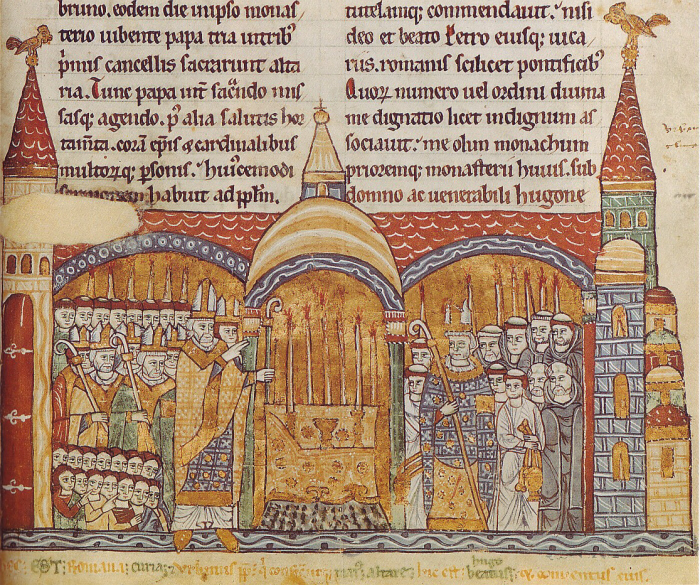 bruno. eodem die inipso monas
terio iubente papa tria intribꝰ
p̄mis cancellis sacrarunt alta
ria. Tunc papa int̄ sac̄ndo mis
sasq; agendo. pꝰ alia salutis hor
tam̄ta. corā ep̄is & cardinalibus
multorq; p̄sonis. huiꝰcemodi
sermonem habuit ad pp̄lm.
tutelamq; commendauit. nisi
deo et beato Petro eiusq; uica
riis. romanis scilicet pontificibꝰ
Quorꝫ numero uel ordini diuina
me dignatio licet indignum as
sociauit. me olim monachum
prioremq; monasterii huius. sub
domno ac uenerabili hugone
EST; Romana; curia; altare; hic est; hugo beatus; & conuentus eius